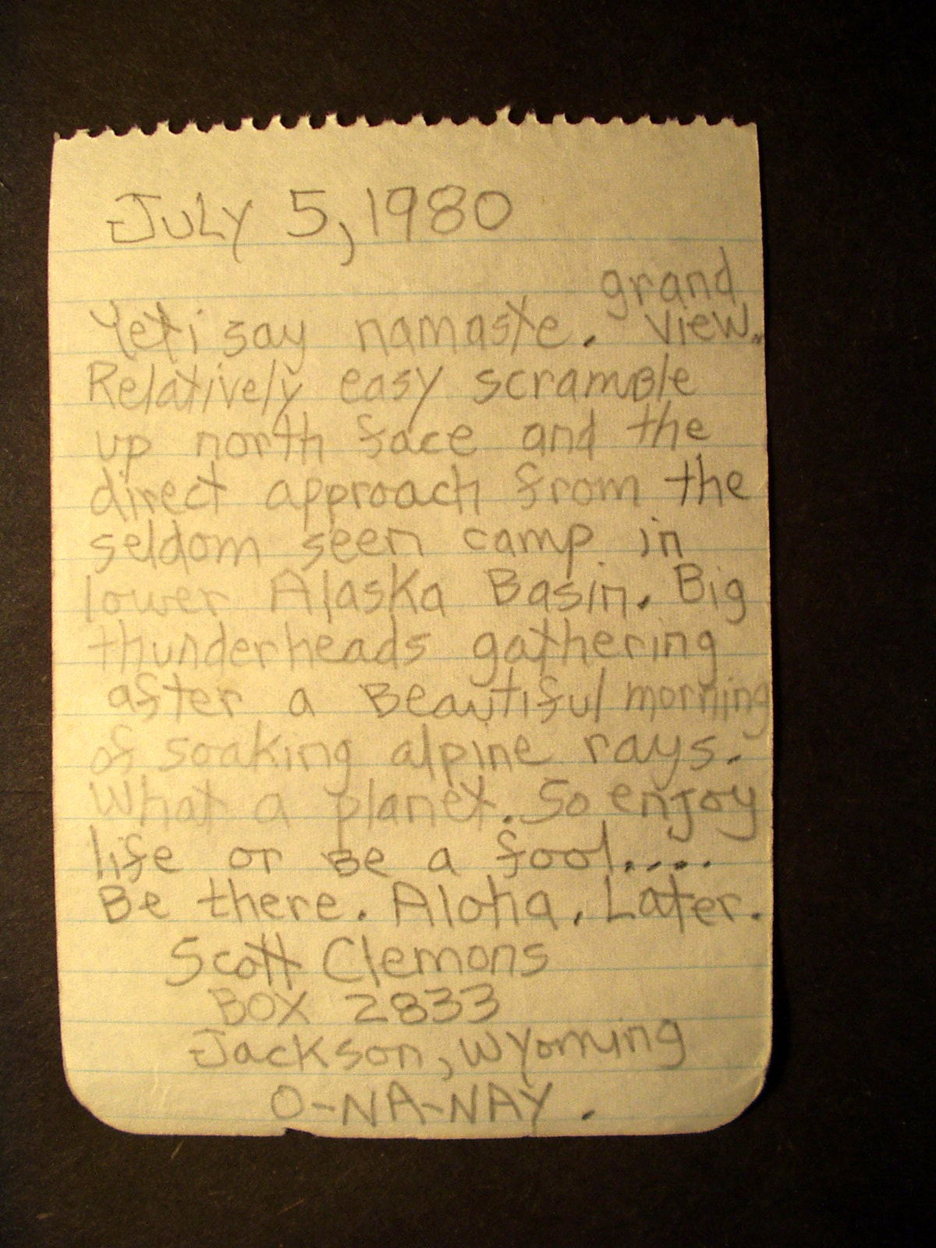 July 5, 1980
grand
Yeti say namaste. view.
Relatively easy scramble
up north face and the
direct approach from the
seldom seen camp in
lower Alaska Basin. Big
thunderheads gathering
after a Beautiful morning
of soaking alpine rays.
What a planet. So enjoy
life or Be a fool....
Be there. Aloha. Later.
Scott Clemons
BOX 2833
Jackson, Wyoming
O-NA-NAY.